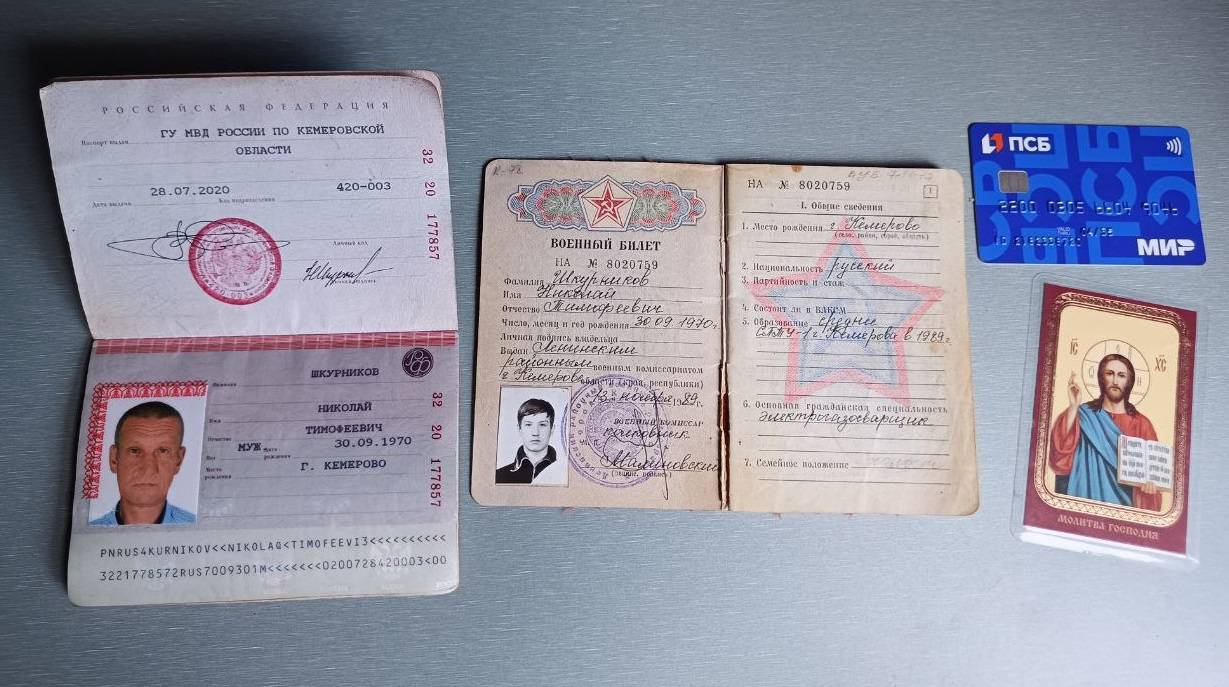 РОССИЙСКАЯ ФЕДЕРАЦИЯ
Паспорт выдан ГУ МВД РОССИИ ПО КЕМЕРОВСКОЙ
ОБЛАСТИ
28.07.2020 420-003
Дата выдачи Код подразделения
Личный код
32 20 177857
ШКУРНИКОВ
Фамилия
НИКОЛАЙ
Имя
ТИМОФЕЕВИЧ
Отчество
МУЖ. 30.09.1970
Пол Дата рождения
Г. КЕМЕРОВО
Место рождения
32 20 177857
PNRUS4KURNIKOV<<NIKOLAQ<TIMOFEEVI3<<<<<<<<<<
3221778572RUS7009301M<<<<<<<0200728420003<00
ВОЕННЫЙ БИЛЕТ
НА № 8020759
Фамилия Шкурников
Имя Николай
Отчество Тимофеевич
Число, месяц и год рождения 30.09.1970г.
Личная подпись владельца
Выдан Ленинским
районным военным комиссариатом
г. Кемерово области (края, республики)
ноября 1989г.
ВОЕННЫЙ КОМИССАР
полковник
Малиновский
(звание, подпись)
НА № 8020759
1
I. Общие сведения
1. Место рождения г. Кемерово
(село, район, город, область)
2. Национальность русский
3. Партийность и стаж
4. Состоит ли в ВЛКСМ
5. Образование среднее
г. Кемерово в 1989г.
6. Основная гражданская специальность
электрогазосварщик
7. Семейное положение
ПСБ
МИР
IC XC
МОЛИТВА ГОСПОДНЯ